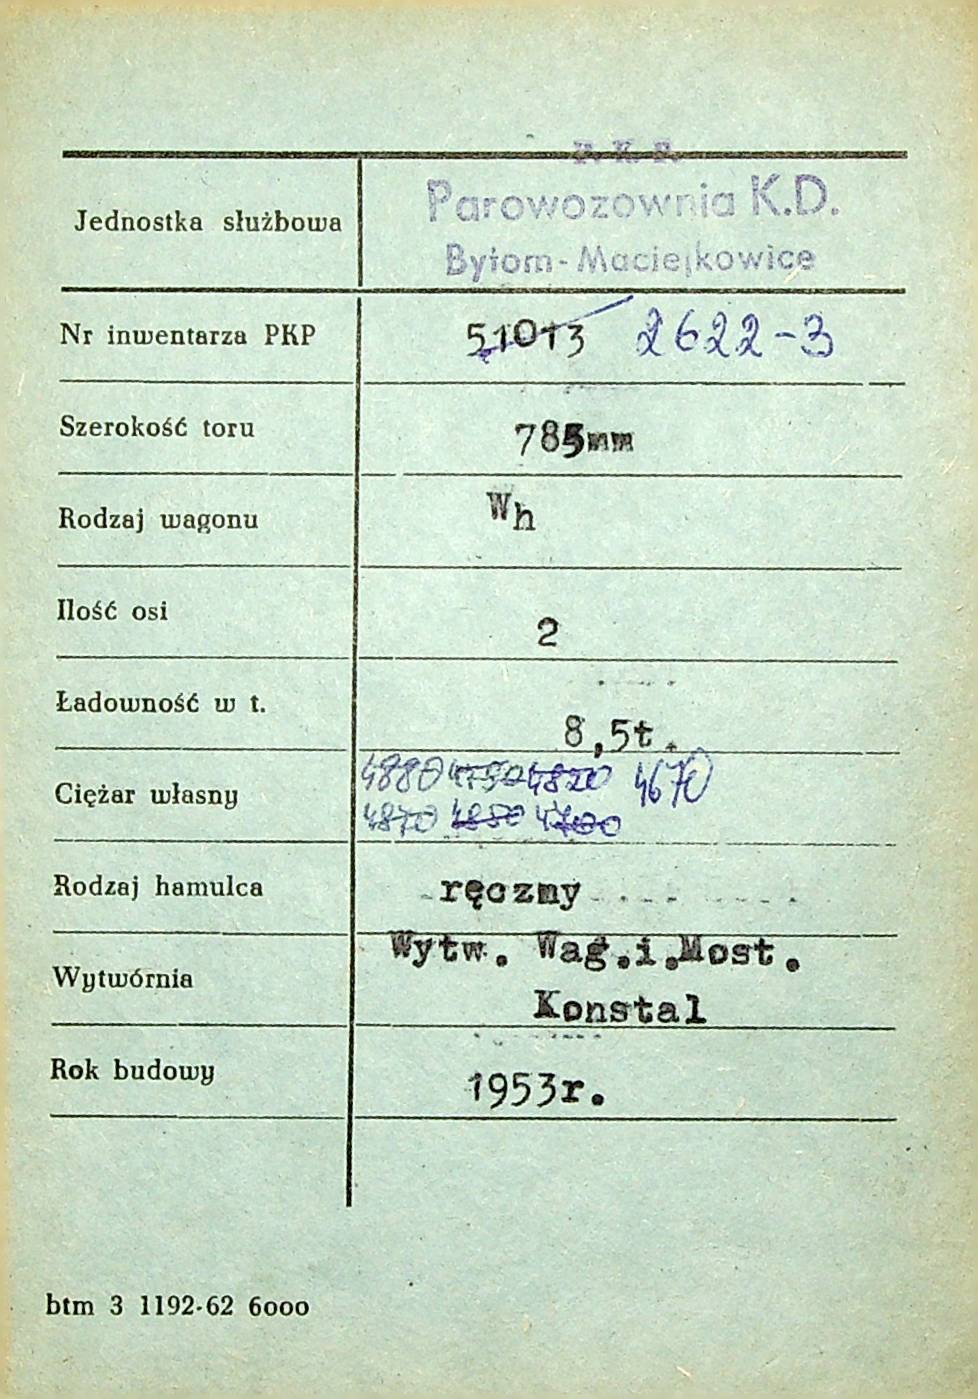 P. K. P.
Parowozownia K.D.
Bytom-Maciejkowice
Jednostka służbowa
Nr inwentarza PKP 51013 2622-3
Szerokość toru 785mm
Rodzaj wagonu Wh
Ilość osi 2
Ładowność w t. 8,5t.
Ciężar własny 4880 4750 4820 4670
4870 4850 4700
Rodzaj hamulca ręczny
Wytwórnia Wytw. Wag.i.Most.
Konstal
Rok budowy 1953r.
btm 3 1192-62 6000